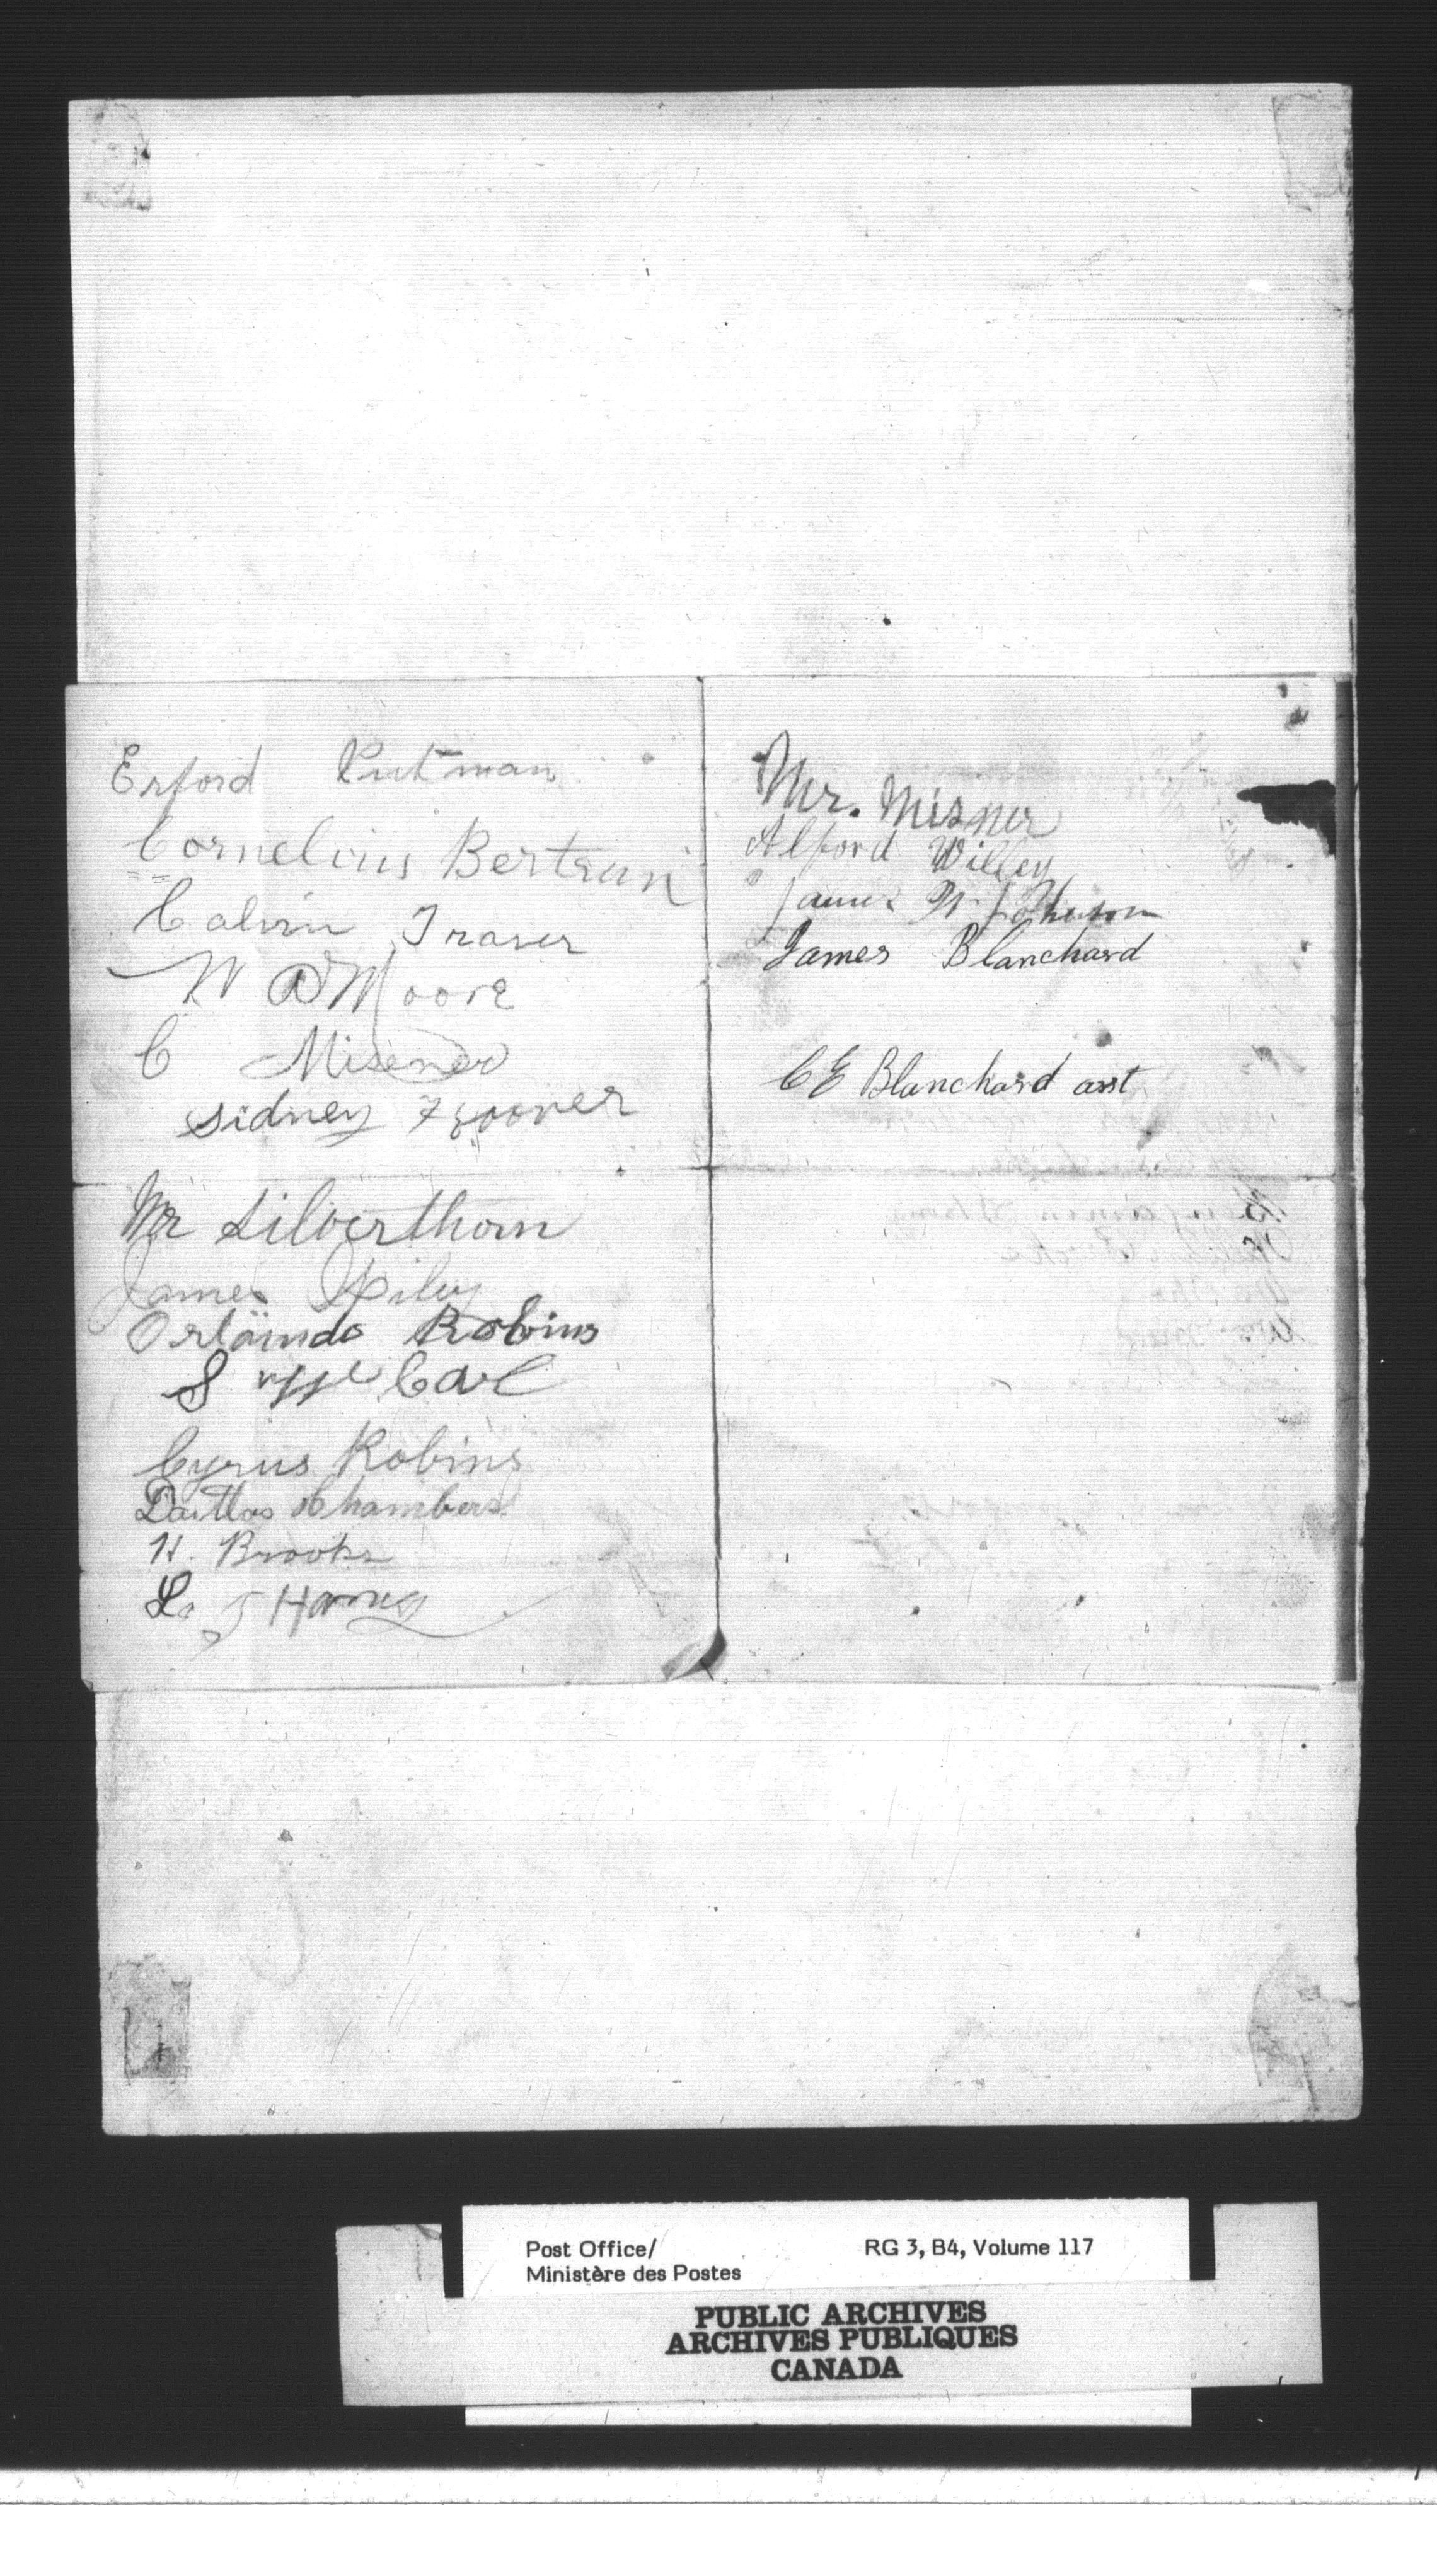 Erford Putman
Cornelius Bertran
Calvin Traver
W D Moore
C Misener
Sidney
Mr Silverthorn
James Riley
Orlando Robins
S Carl
Cyrus Robins
Dallas Chambers
H. Brooks
L. J Harris
Mr. Misner
Alford Willey
James W Johnson
James Blanchard
C E Blanchard asst
Post Office/
Ministère des Postes
RG 3, B4, Volume 117
PUBLIC ARCHIVES
ARCHIVES PUBLIQUES
CANADA